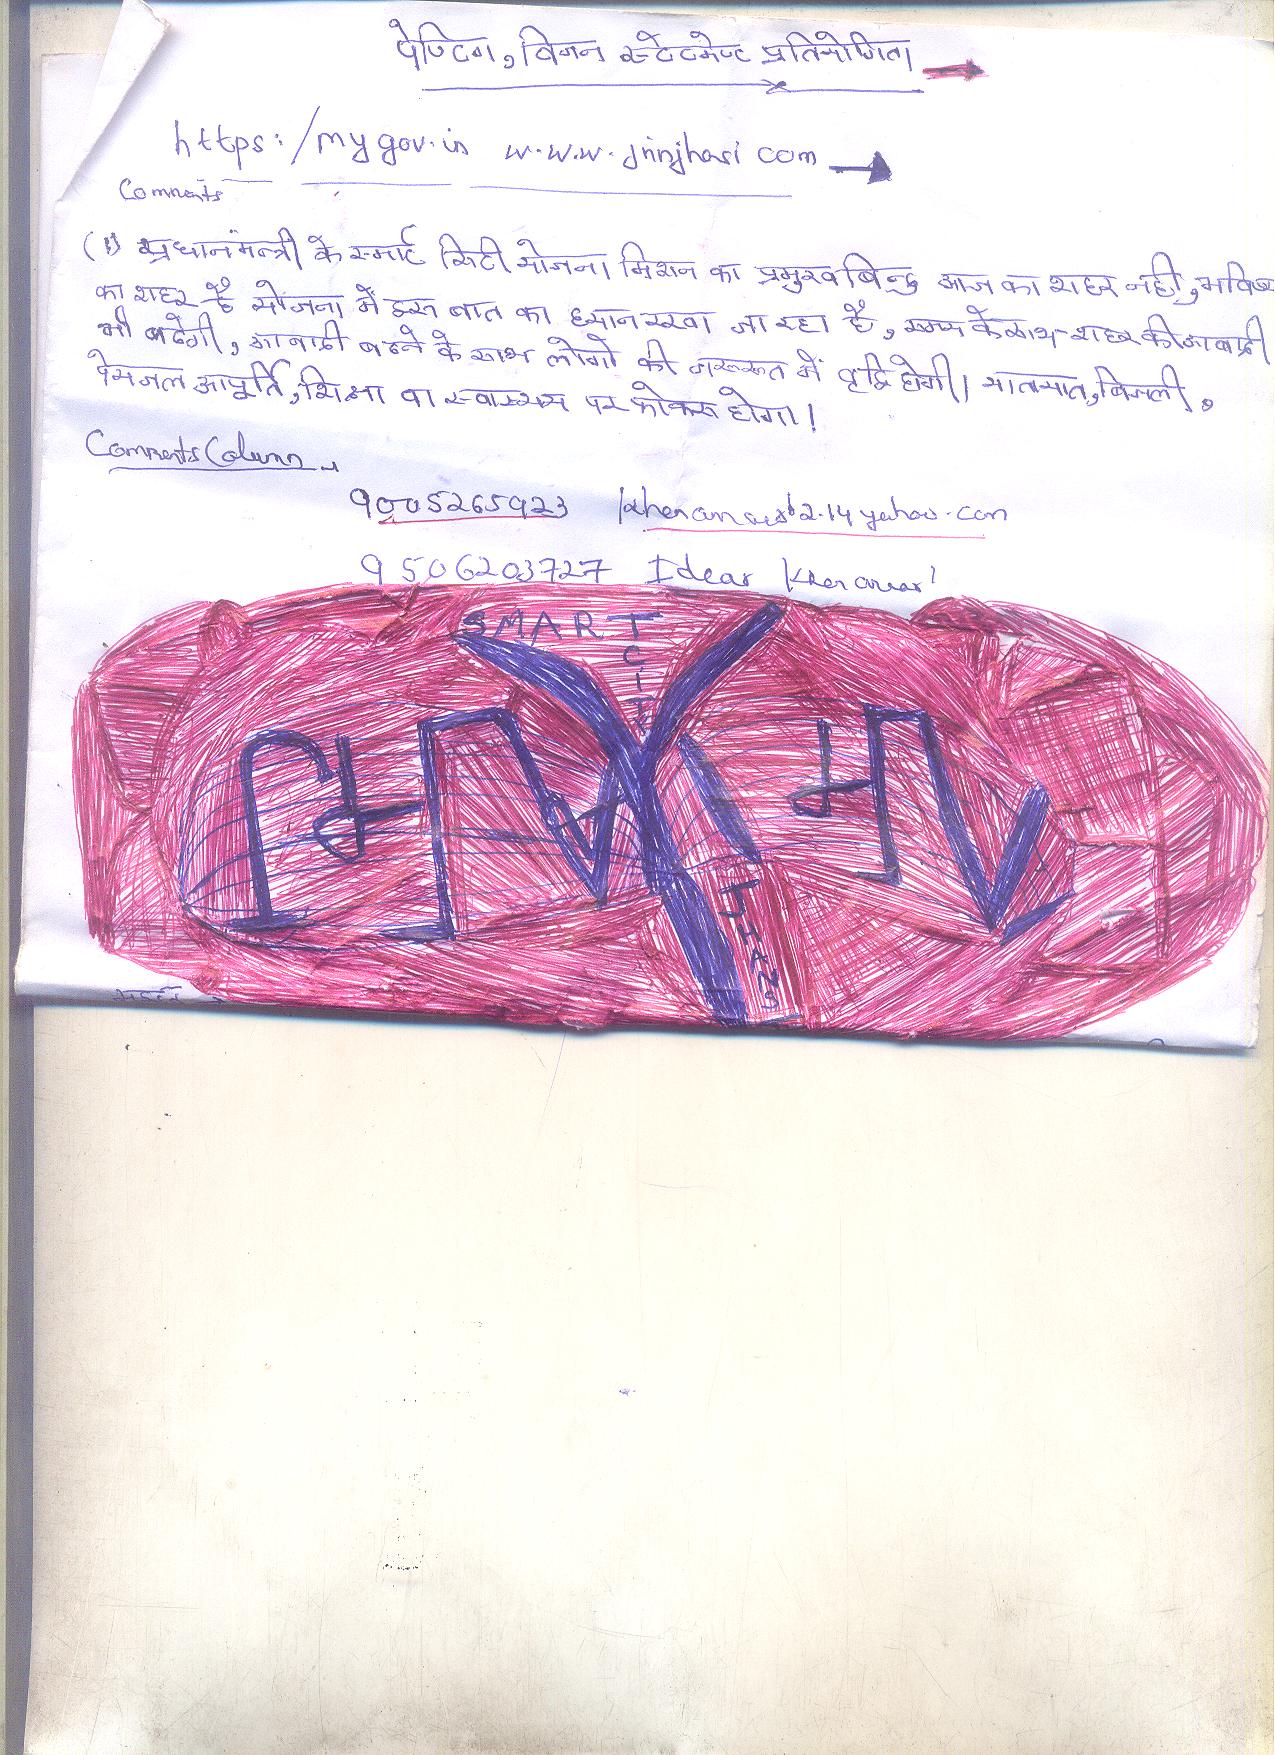 पेण्टिग, विजन स्टेटमेण्ट प्रतियोगिता
https:/mygov.in w.w.w.jnnjhasi com
Comments
(1) प्रधानमन्त्री के स्मार्ट सिटी योजना मिशन का प्रमुख बिन्दु आज का शहर नही, भविष्य
का शहर है योजना में इस बात का ध्यान रखा जा रहा है, समय के साथ-शहर की आबादी
भी बढेगी, आबादी बढने के साथ लोगो की जरूरत में वृद्धि होगी। यातायात, बिजली,
पेयजल आपूर्ति, शिक्षा वा स्वास्थय पर फोकस होगा!
Comments Column
9005265923 yahoo.com
9506203727 Idear
SMART
CITY
JHANS